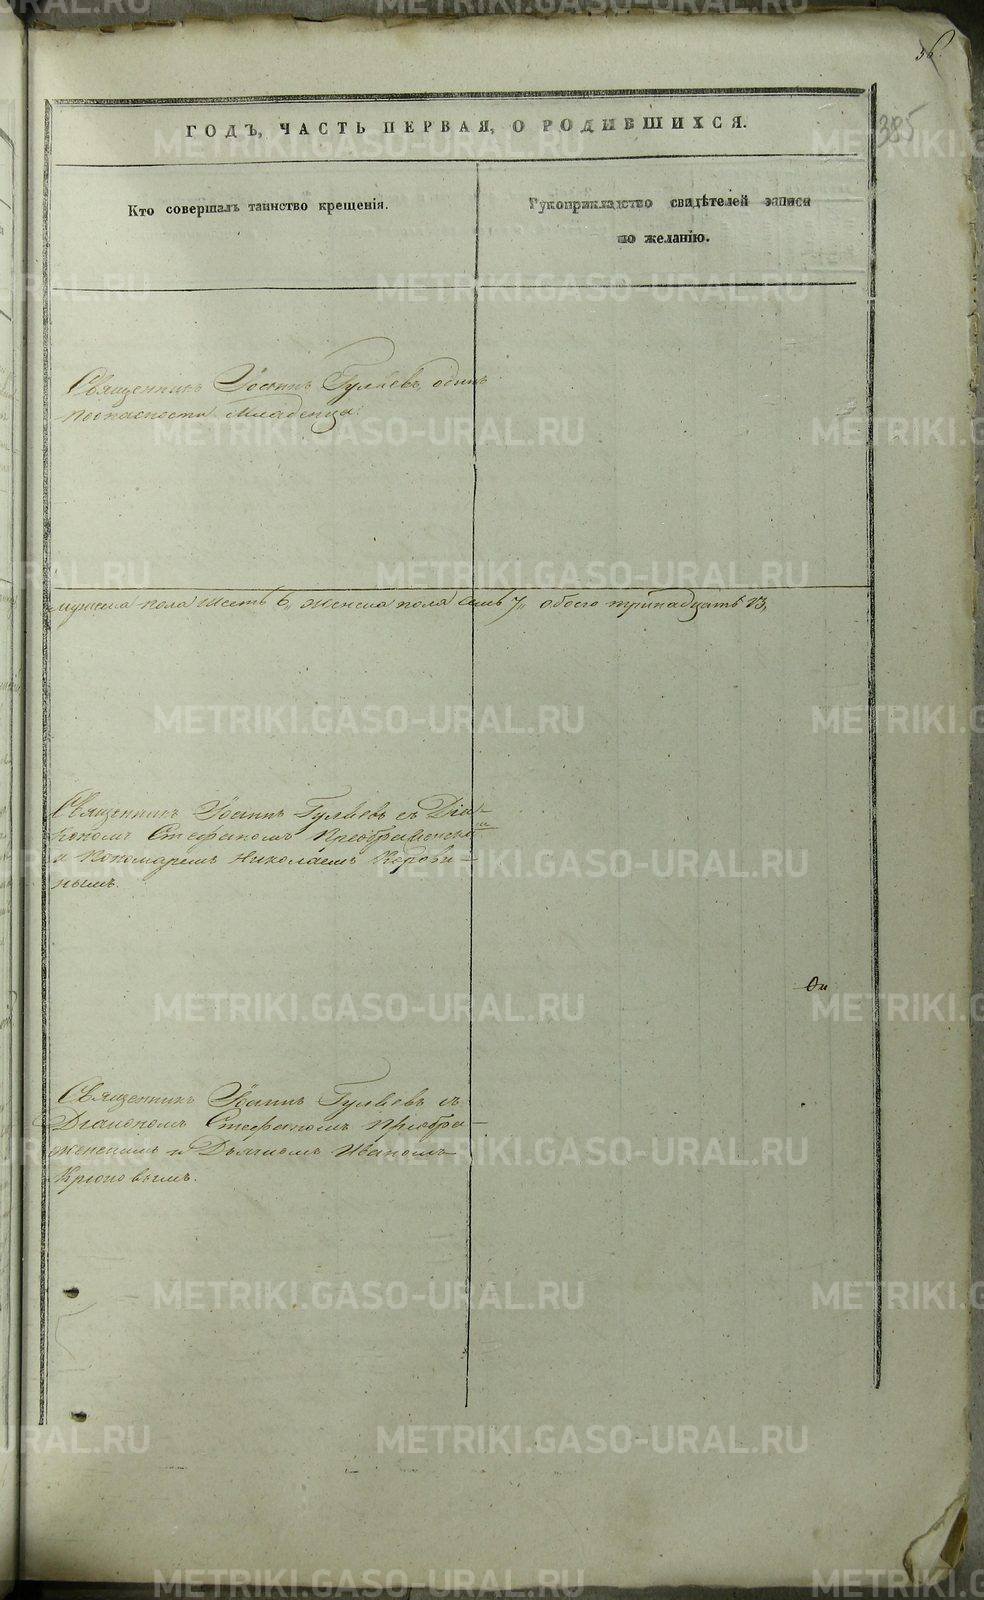 56.
385
ГОДЪ, ЧАСТЬ ПЕРВАЯ, О РОДИВШИХСЯ.
Кто совершалъ таинство крещенія.
Рукоприкладство свидѣтелей записи
по желанію.
Священникъ Іоаннъ Гуляевъ, одинъ
поопасности Младенца.
мужеска пола шесть 6, женска пола семь 7, обоего тринадцать 13,
Священникъ Іоаннъ Гуляевъ съ Діа-
кономъ Стефаномъ Преображенскимъ
и Пономаремъ Николаемъ
нымъ.
Священникъ Іоаннъ Гуляевъ съ
Діакономъ Стефаномъ Преобра-
женскимъ и Дьячкомъ Иваномъ
Крюковымъ.
METRIKI.GASO-URAL.RU